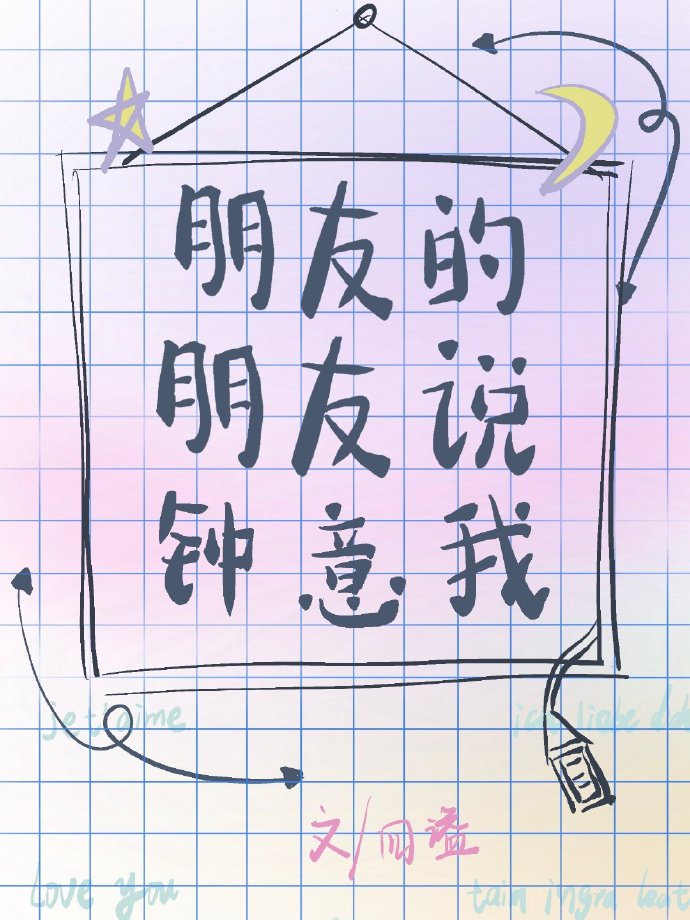 朋友的
朋友说
钟意我
je t'aime
ich liebe dich
文/冋谧
love you
taim ingra leat